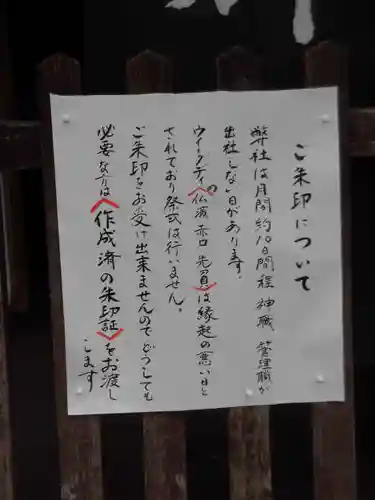 ご朱印について
弊社は月間約10日間程 神職、管理職が
出社しない日があります。
ウイークディの《仏滅 赤口 先負》は縁起の悪い日と
されており祭式は行いません。
ご朱印をお受け出来ませんのでどうしても
必要な方は《作成済の朱印証》をお渡し
します